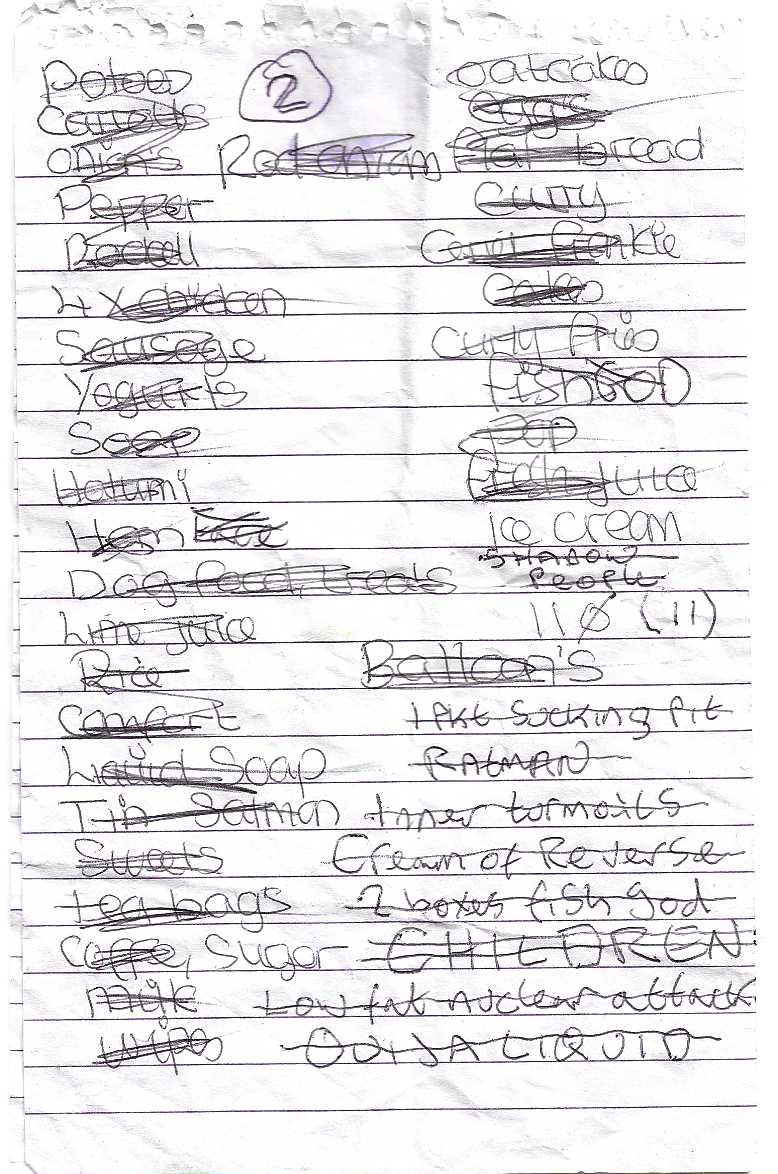 2
Potoes
Carrots
Onions
Red onion
Pepper
4 x chicken
Sausage
Yogurts
Soap
Halumi
Ham
Dog food, treats
Lime juice
Rice
Comfort
Liquid Soap
Tin Salmon
Sweets
tea bags
Coffe, Sugar
milk
wipes
oatcakes
eggs
flat bread
Curry
Cakes
Curly fries
Fish GOD
Pop
juice
Ice cream
SHADOW
PEOPLE
110 (11)
Balloon's
1 PKt Sucking Pit
RATMAN
Inner tormoits
Cream of Reverse
2 boxes fish god
CHILDREN
Low fat nuclear attack
OUIJA LIQUID